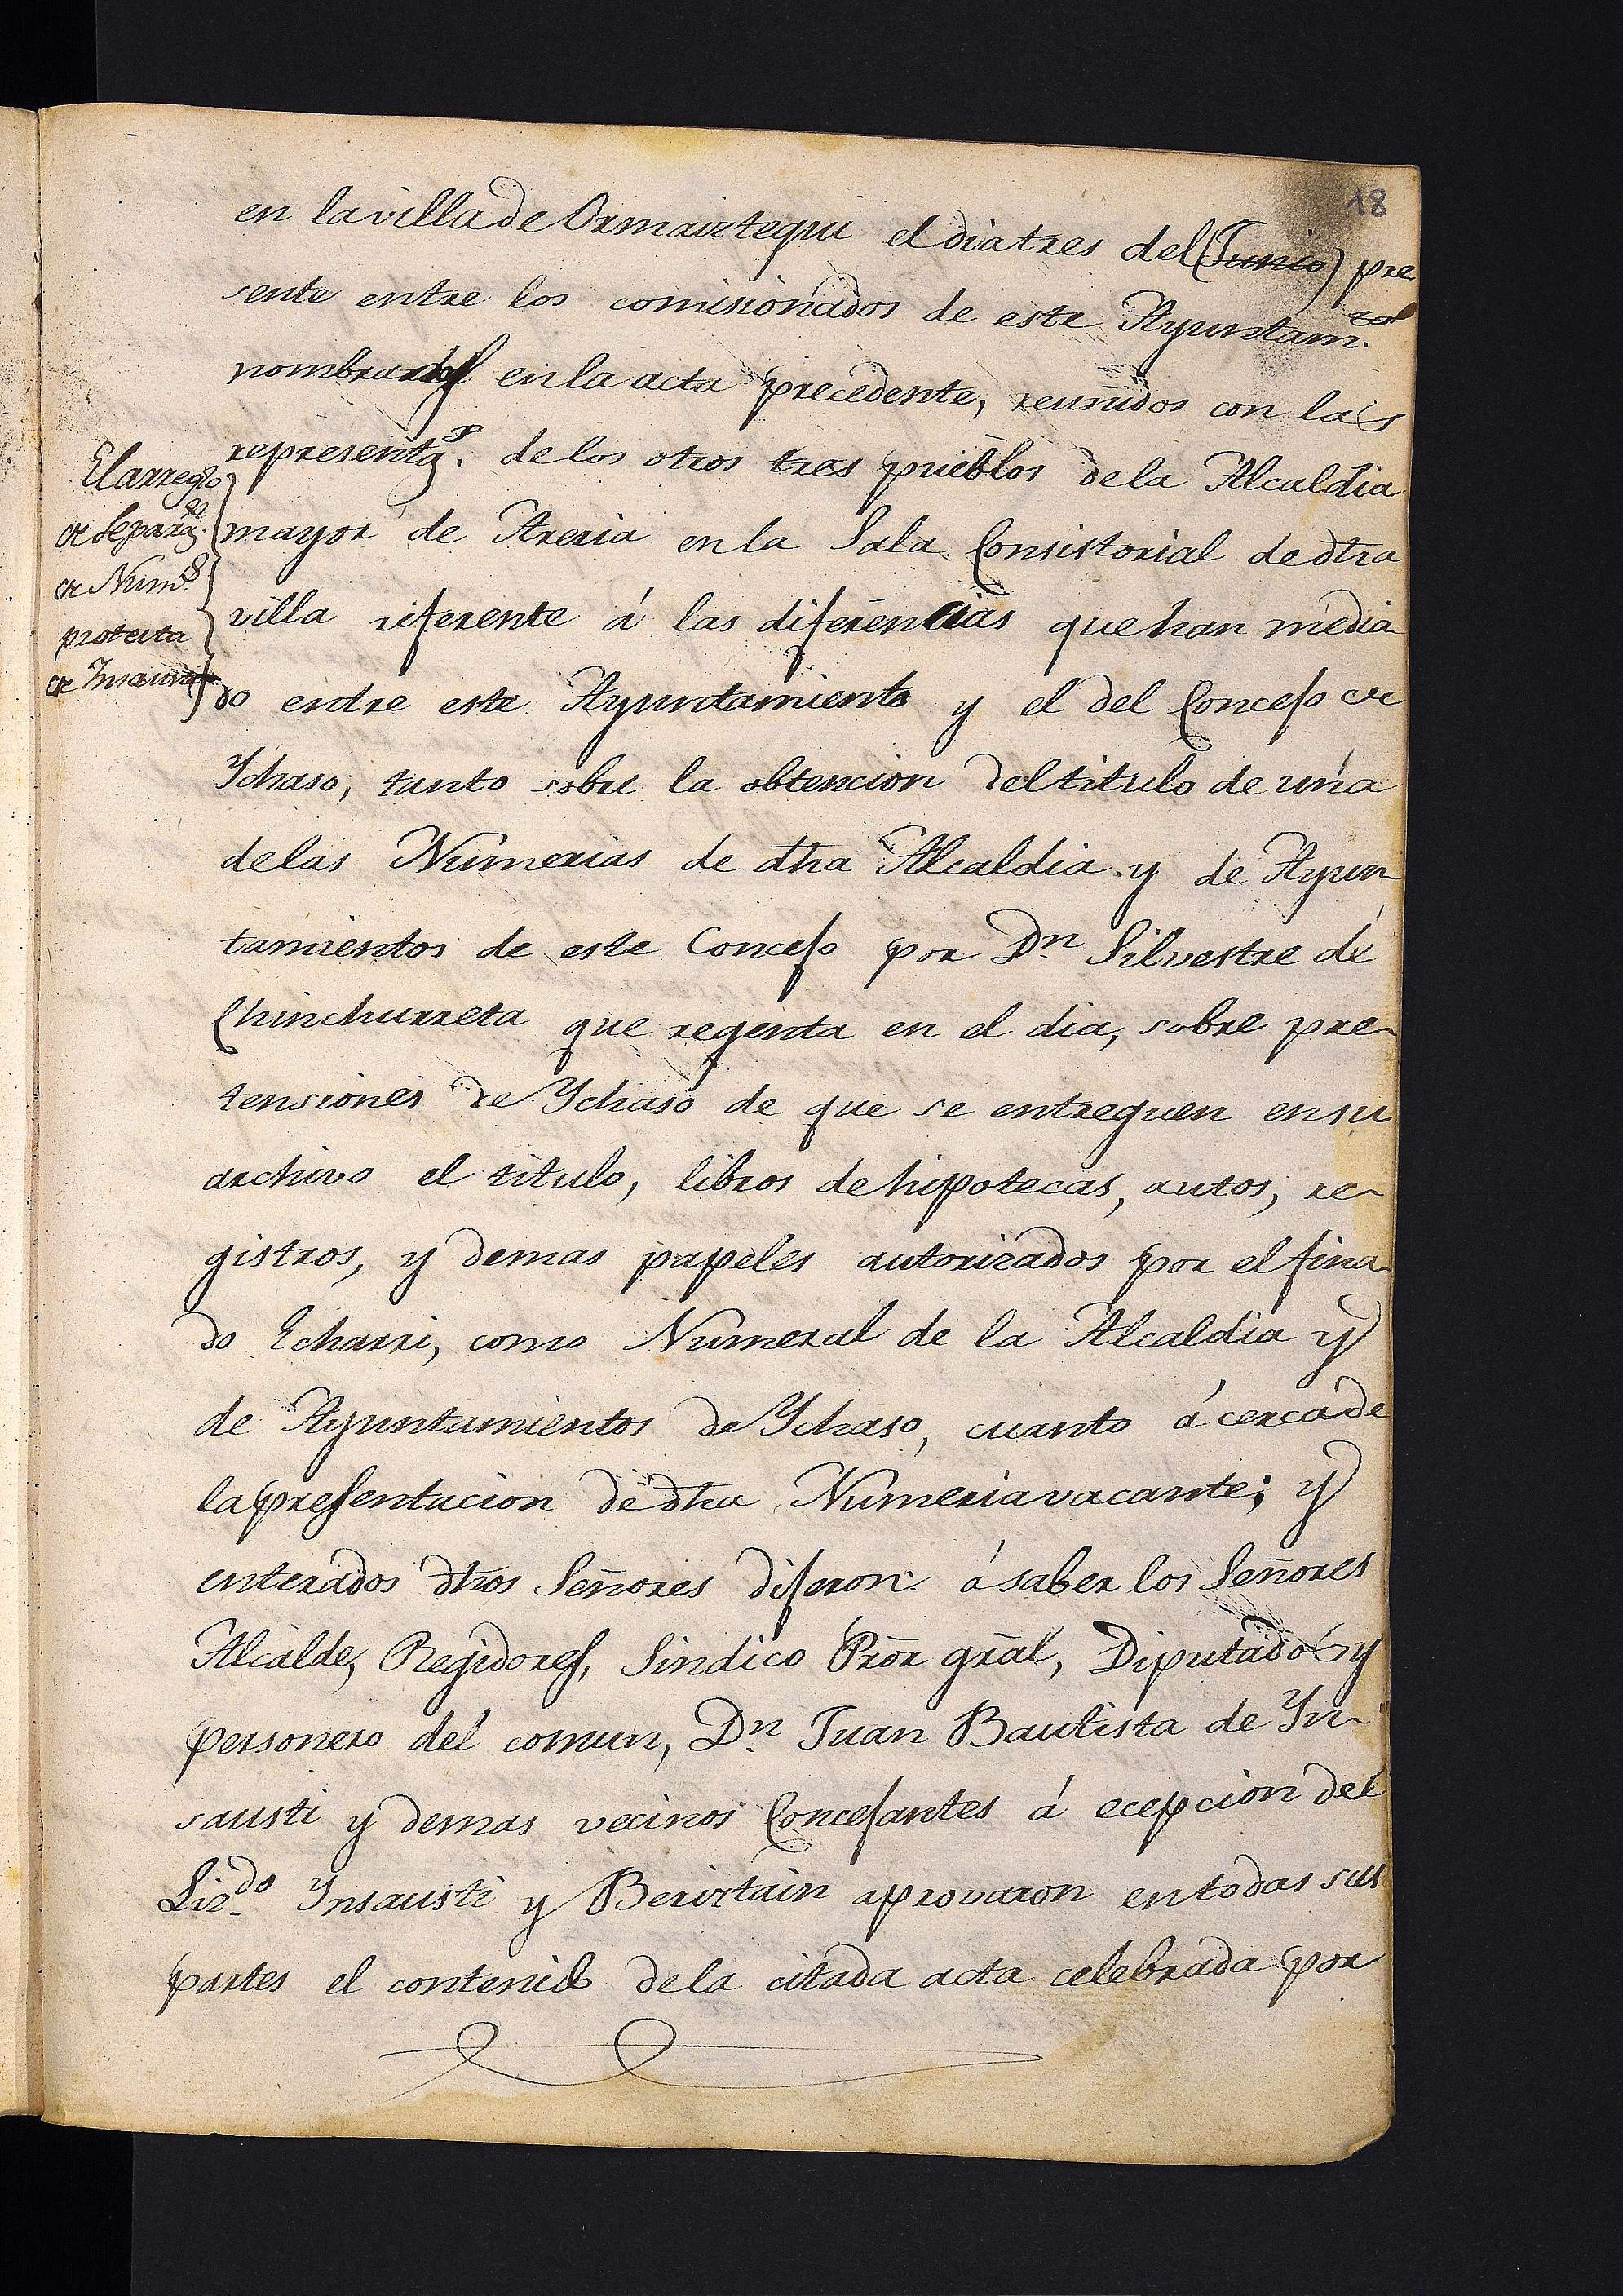 18
en la villa de Ormaiztegui el dia tres del (Junio) pre
sente entre los comisionados de este Ayuntam.to
nombrados en la acta precedente, reunidos con las
represent.s de los otros tres pueblos de la Alcaldia
mayor de Areria en la Sala Consistorial de dha
villa referente á las diferencias que han media
do entre este Ayuntamiento y el del Concejo de
Ychaso, tanto sobre la obtencion del titulo de una
de las Numerias de dha Alcaldia y de Ayun
tamientos de este Concejo por Dn. Silvestre de
Chinchurreta que regenta en el dia, sobre pre-
tensiones de Ychaso de que se entreguen en su
archivo el titulo, libros de hipotecas, autos, re-
gistros, y demas papeles autorizados por el fina
do Echarri, como Numeral de la Alcaldia y
de Ayuntamientos de Ychaso, cuanto á cerca de
la presentacion de dha Numeria vacante; y
enterados dhos Señores dijeron: á saber los Señores
Alcalde, Regidores, Sindico Pror gral, Diputados y
personero del comun, Dn. Juan Bautista de Yn-
sausti y demas vecinos Concejantes á ecepcion del
Liz.do Ynsausti y Beriztain aprovaron en todas sus
partes el contenido de la citada acta celebrada por
El arreglo
de separ.n
de Num.s
protesta
de Insausti